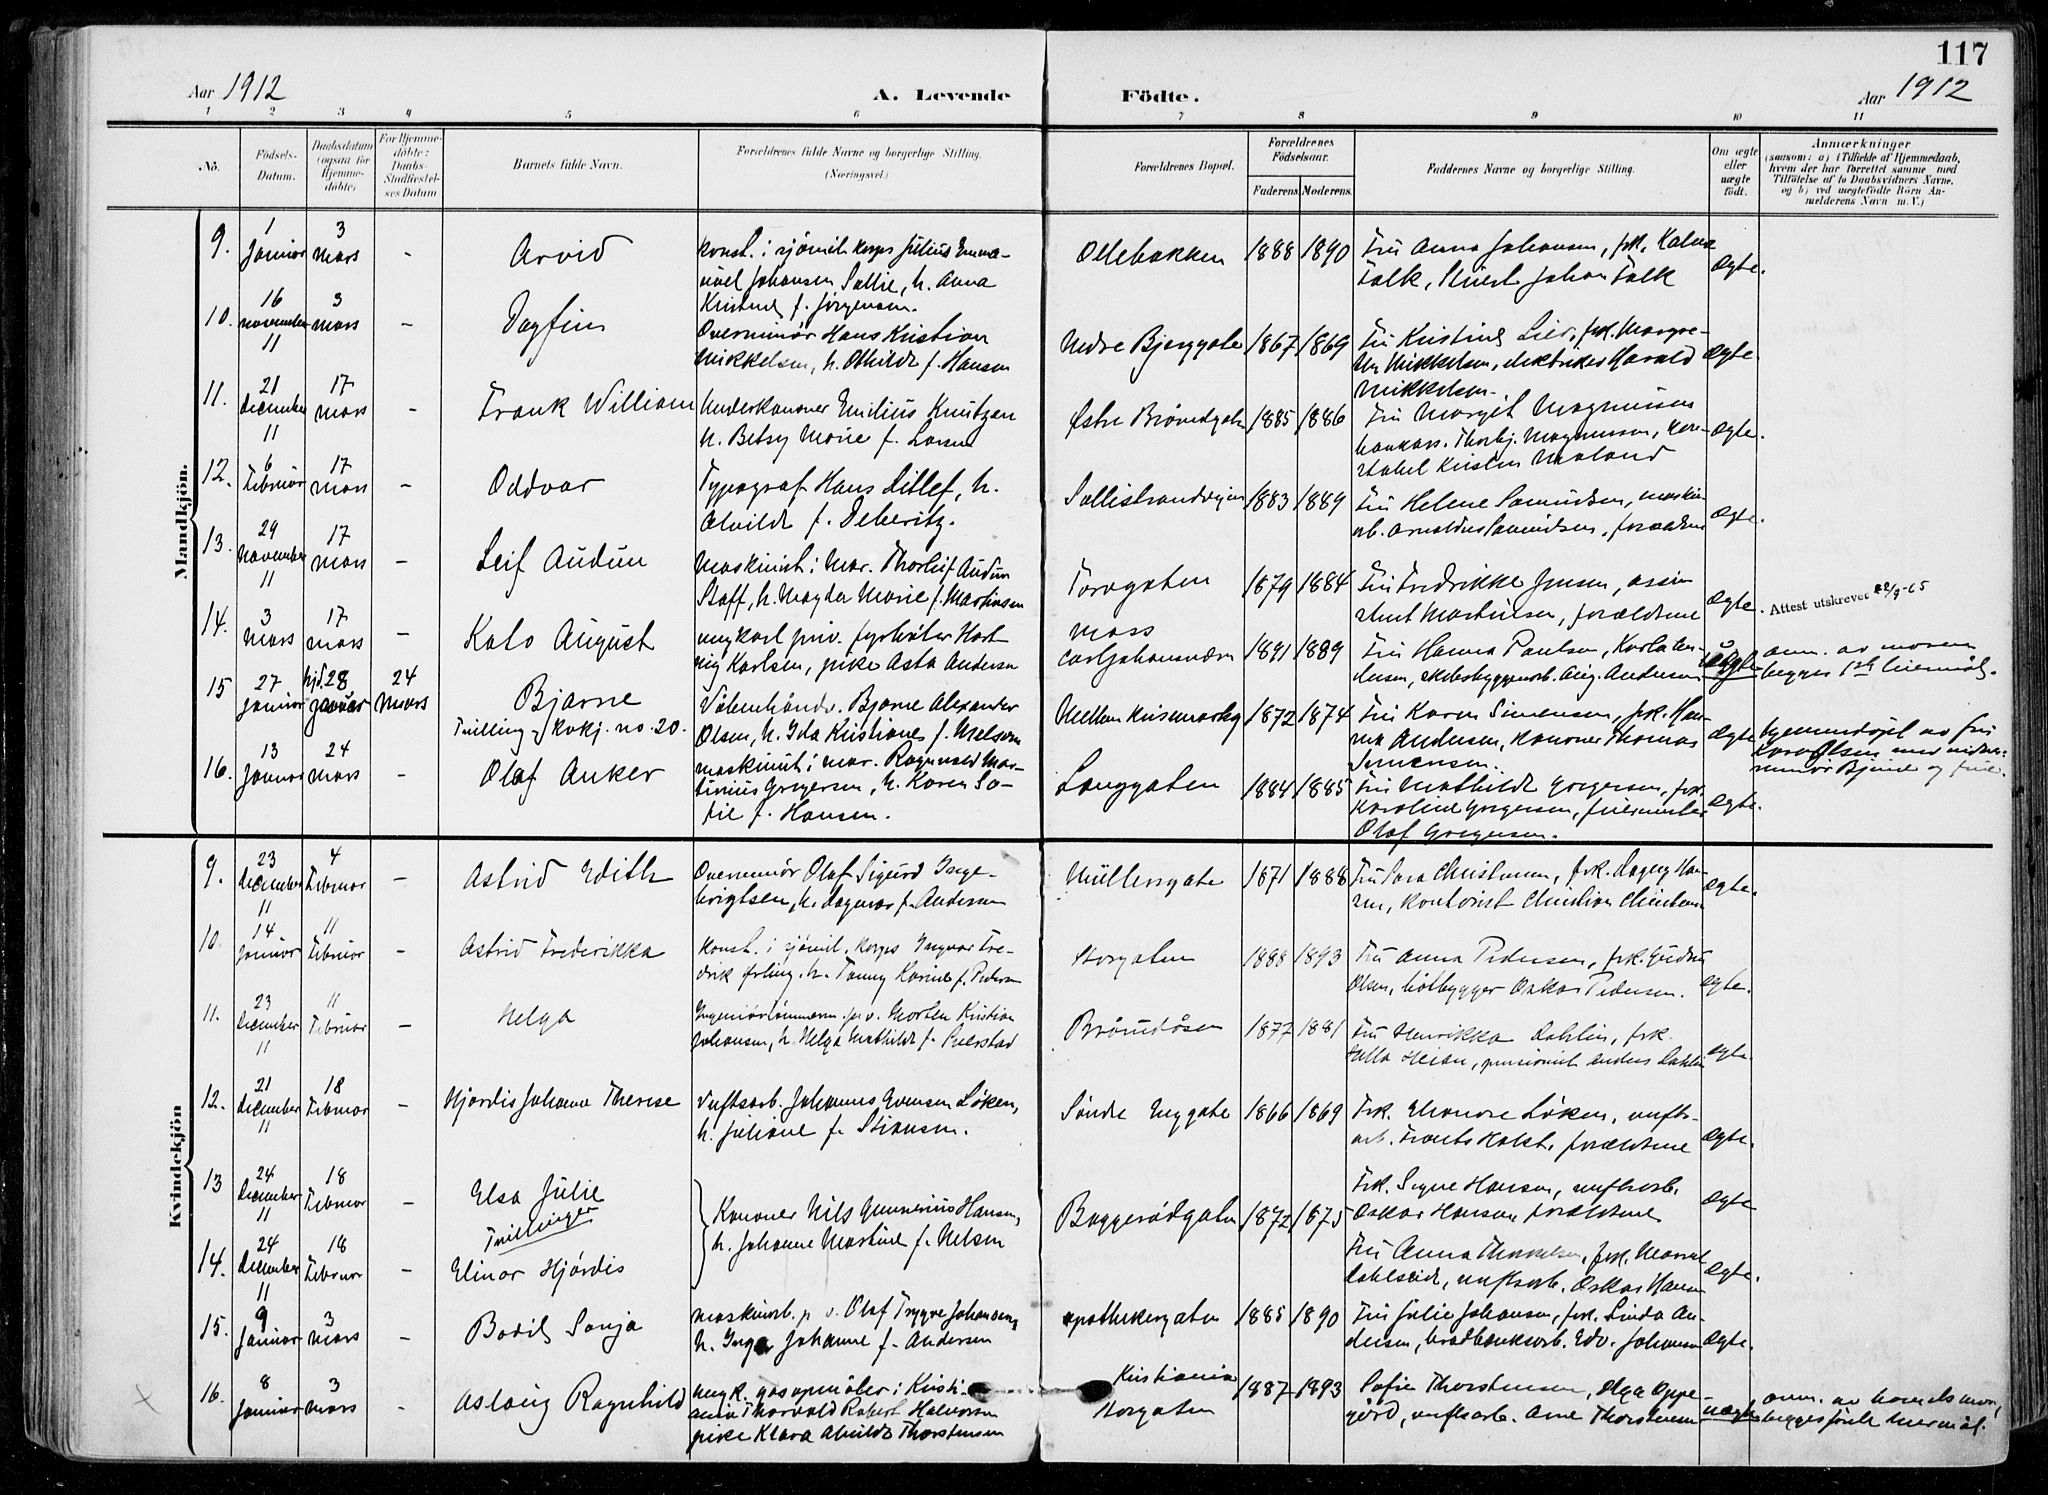 117
Aar 1912
A. Levende Födte.
Aar 1912
1 2 3 4 5 6 7 8 9 10 11
No.
Födsels-Datum.
Daabsdatum (ogsaa for Hjemme-döbte)
For Hjemme-döbte: Daabs-Stadfæstel-ses Datum
Barnets fulde Navn.
Forældrenes fulde Navne og borgerlige Stilling. (Næringsvei.)
Forældrenes Bopæl.
Forældrenes Födselsaar.
Faderens. Moderens.
Faddernes Navne og borgerlige Stilling.
Om ægte eller uægte födt.
Anmærkninger
(saasom: a) i Tilfælde af Hjemmedaab,
hvem der har forrettet samme med
Tilföielse af to Daabsvidners Navne,
og b) ved uægtefödte Börn An-
melderens Navn m. V.)
Mandkjön.
9. 1 Januar 3 Mars - Arvid
konst. i sjömil. korps Julius Emma-
nuel Johansen Sollie, h. Anna
Kristine f. Jörgensen.
Ollebakken 1888 1890
Fru Anna Johansen, frk.
Falk, Johan Falk
Ægte.
10. 16 November 11 3 Mars - Dagfin
Overminör Hans Kristian
Mikkelsen, h. Othilde f. Hansen
Nedre Bjerggate 1867 1869
Fru Kristine Lier, frk. Margre-
the Mikkelsen, Harald
Mikkelsen.
Ægte.
11. 21 December 11 17 Mars - Frank William
Underkanoner Emilius Knutzen
h. Betsy Marie f. Larsen
Østre Bröundgate 1885 1886
Fru Margit Magnussen
Thorbj. Magnussen,
Kristen
Ægte.
12. 6 Februar 17 Mars - Oddvar
Typograf Hans Lillef, h.
Alvilde f. Deberitz.
Sollistrandveien 1883 1889
Fru Helene Samuelsen, maskin-
arb. Samuelsen, forældrene
Ægte.
13. 29 November 11 17 Mars - Leif Audun
Maskinist i Mar. Thorleif Audun
Staff, h. Magda Marie f. Martinsen
Torvgaten 1879 1884
Fru Fredrikke Jensen, assi-
stent Martinsen, forældrene
Ægte. Attest utskrevet 22/9-65
14. 3 Mars 17 Mars - Kato August
ungkarl priv. fyrböter Hart-
vig Karlsen, pike Asta Andersen
Moss
Carljohansværn 1891 1889
Fru Hanna Paulsen, Karl An-
dersen, skibsbyggerarb. Aug. Andersen
Uægte
anm. av moren
begges 1ste leiermål.
15 27 Januar hjd. 28 Januar 24 Mars Bjarne
Tvilling f. kvkj. no. 20.
Våbenhåndv. Bjarne Alexander
Olsen, h. Ida Kristiane f. Melsom
Mellem 1872 1874
Fru Karen Simensen, frk. Han-
na Andersen, kanoner Thomas
Simensen.
Ægte
hjemmedöpt av fru
Olsen med
minör og fru.
16. 13 Januar 24 Mars - Olaf Anker
maskinist i mar. Ragnvald Mar-
tinius Gregersen, h. Karen So-
fie f. Hansen.
Langgaten 1884 1885
Fru Mathilde Gregersen, frk.
Karoline Gregersen,
Olaf Gregersen.
Ægte.
Kvindekjön
9. 23 December 11 4 Februar - Astrid Edith
Overminör Olaf Sigurd Inge-
brigtsen, h. Dagmar f. Andersen
Müllersgate 1871 1888
Fru Sara Christensen, frk. Dagny Han-
sen, kontorist Christian Christensen
Ægte.
10. 14 Januar 11 Februar - Astrid Frederikka
konst. i sjömil. korps Ingvar Fre-
drik Erling, h. Fanny Karine f. Pedersen
Storgaten 1888 1893
Fru Anna Pedersen, frk. Gudrun
Olsen, båtbygger Oskar Pedersen.
Ægte.
11. 23 December 11 11 Februar - Helga
Morten Kristian
Johansen, h. Helga Mathilde f.
Bröndåsen 1877 1881
Fru Henrikka Dahlin, frk.
pensionist Anders Dahlin
Ægte.
12. 21 December 11 18 Februar - Hjördis Johanne Therese
Verftsarb. Johannes Evensen Löken,
h. Juliane f. Stiansen.
Söndre Enggate 1866 1869
Frk. Elenore Löken, verfts-
arb. Frants Holst, forældrene
Ægte.
13 24 December 11 18 Februar - Elsa Julie
Tvillinger
Kanoner Nils Gunnerius Hansen,
h. Johanne Martine f. Nelsen
Baggerödgaten 1872 1875
Frk. Signe Hansen, verftsarb.
Oskar Hansen, forældrene
Ægte
14. 24 December 11 18 Februar - Elinor Hjördis
Fru Anna Thorkelsen, frk.
verftsarb. Oskar Hansen
Ægte.
15. 9 Januar 3 Mars - Bodil Sonja
Maskinarb. p. v. Olaf Trygve Johansen,
h. Inga Johanne f. Andersen
Apothekergaten 1885 1890
Fru Julie Johansen, frk. Linda An-
dersen, Edv. Johansen
Ægte.
16. 8 Januar 3 Mars - Aslaug Ragnhild
Ungk. gasopmåler i Kristi-
ania Thorvald Robert Halvorsen
pike Klara Alvilde Thorstensen
Kristiania
Storgaten 1887 1893
Sofie Thorstensen, Olga Oppe-
gård, verftsarb. Arne Thorstensen
uægte
anm. av barnets mor,
begges förste leiermål.